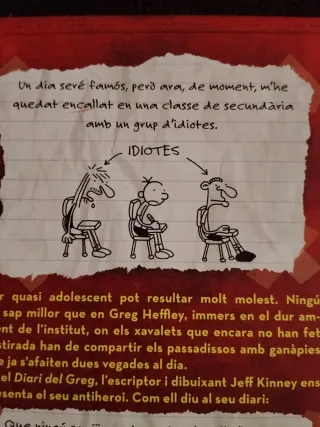 Un dia seré famós, però ara, de moment, m'he
quedat encallat en una classe de secundària
amb un grup d'idiotes.
IDIOTES
r quasi adolescent pot resultar molt molest. Ningú
sap millor que en Greg Heffley, immers en el dur am-
ent de l'institut, on els xavalets que encara no han fet
estirada han de compartir els passadissos amb ganàpies
e ja s'afaiten dues vegades al dia.
el Diari del Greg, l'escriptor i dibuixant Jeff Kinney ens
esenta el seu antiheroi. Com ell diu al seu diari: